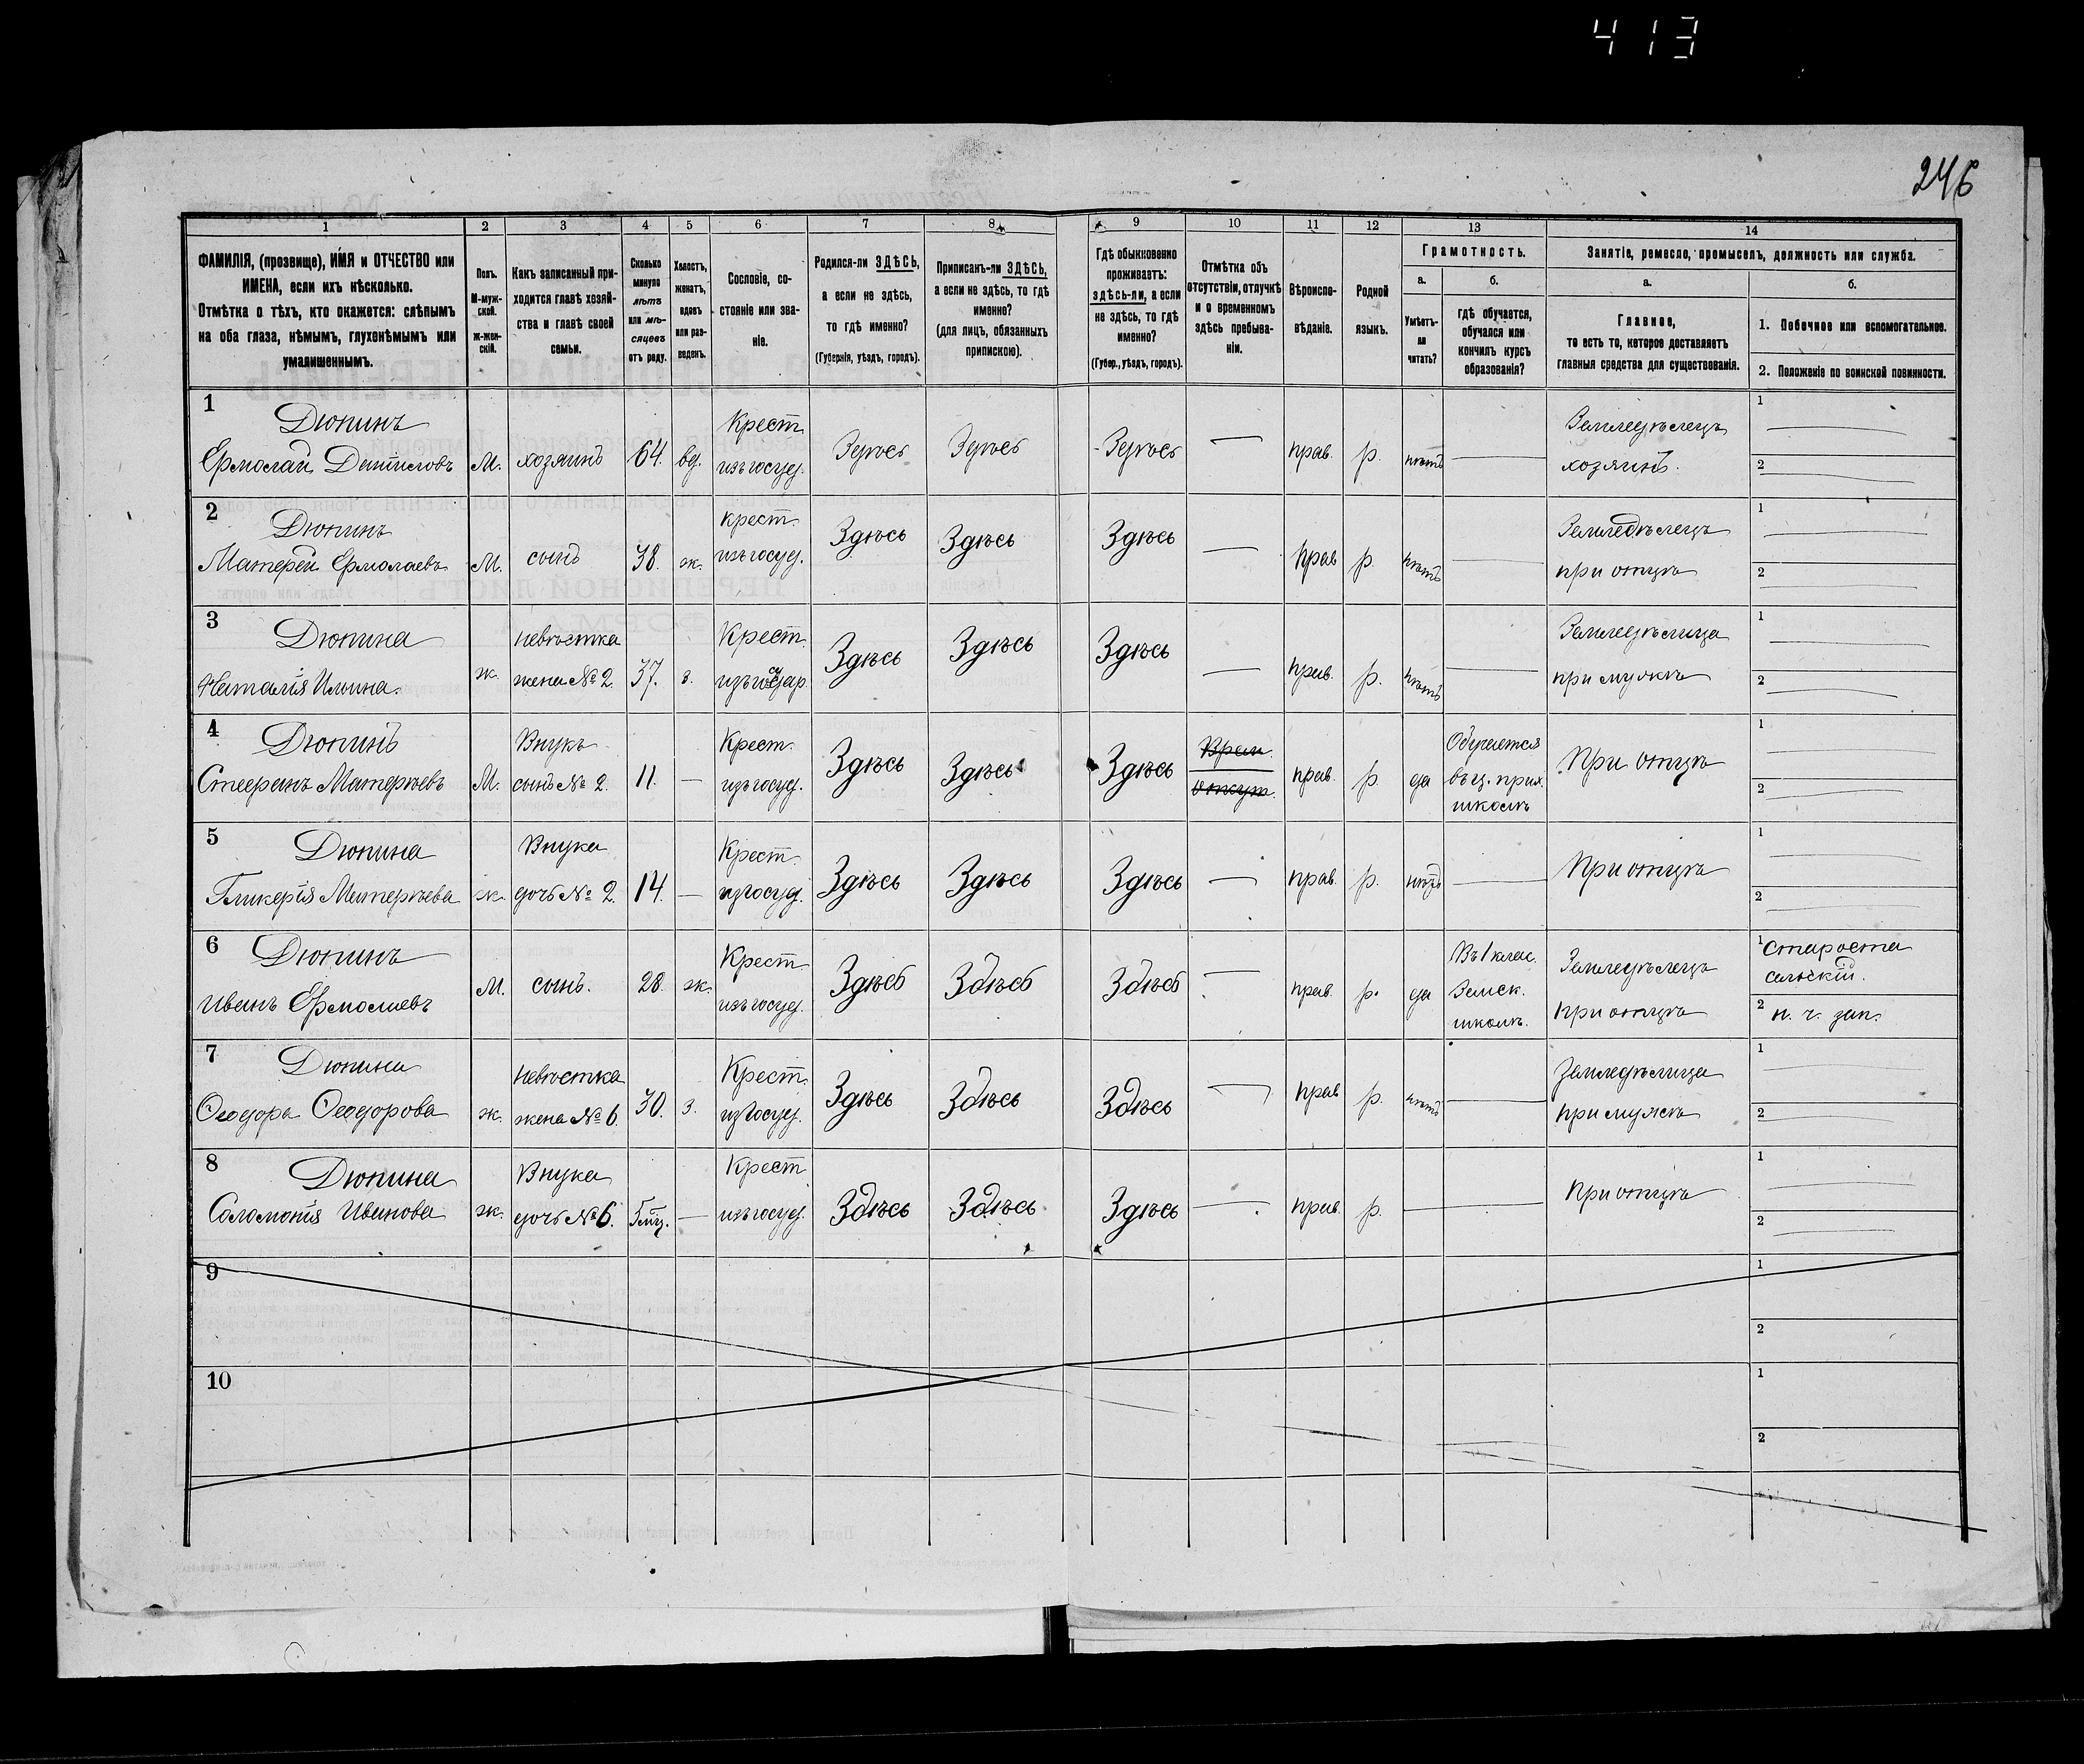 413
246
1
2
3
4
5
6
7
8
9
10
11
12
13
14
ФАМИЛІЯ, (прозвище), ИМЯ и ОТЧЕСТВО или
ИМЕНА, если ихъ нѣсколько.
Отмѣтка о тѣхъ, кто окажется: слѣпымъ
на оба глаза, нѣмымъ, глухонѣмымъ или
умалишеннымъ.
Полъ.
М-муж-
ской.
Ж-жен-
скій.
Какъ записанный при-
ходится главѣ хозяй-
ства и главѣ своей
семьи.
Сколько
минуло
лѣтъ
или мѣ-
сяцевъ
отъ роду.
Холостъ,
женатъ,
вдовъ
или раз-
веденъ.
Сословіе, со-
стояніе или зва-
ніе.
Родился-ли ЗДѢСЬ,
а если не здѣсь,
то гдѣ именно?
(Губернія, уѣздъ, городъ).
Приписанъ-ли ЗДѢСЬ,
а если не здѣсь, то гдѣ
именно?
(для лицъ, обязанныхъ
припискою).
Гдѣ обыкновенно
проживаетъ:
здѣсь-ли, а если
не здѣсь, то гдѣ
именно?
(Губер., уѣздъ, городъ).
Отмѣтка объ
отсутствіи, отлучкѣ
и о временномъ
здѣсь пребыва-
ніи.
Вѣроиспо-
вѣданіе.
Родной
языкъ.
Грамотность.
а.
Умѣетъ-
ли
читать?
б.
гдѣ обучается,
обучался или
кончилъ курсъ
образованія?
Занятіе, ремесло, промыселъ, должность или служба.
а.
Главное,
то есть то, которое доставляетъ
главныя средства для существованія.
б.
1. Побочное или вспомогательное.
2. Положеніе по воинской повинности.
1
Дюпинъ
Ермолай Даниловъ М. хозяинъ 64. вд. Крест.
изъ госуд. Здѣсь Здѣсь Здѣсь — прав. р. нѣтъ — Земледѣлецъ
хозяинъ.
1
2
2
Дюпинъ
Матфей Ермолаевъ М. сынъ 38. ж. крест.
изъ госуд. Здѣсь Здѣсь Здѣсь — прав р. нѣтъ — Земледѣлецъ
при отцѣ
1
2
3
Дюпина
Наталія Ильина. ж. невѣстка
жена № 2. 37. з. Крест.
изъ государ. Здѣсь Здѣсь Здѣсь — прав. р. нѣтъ — Земледѣлица
при мужѣ
1
2
4
Дюпинъ
Стефанъ Матфѣевъ М. Внукъ
сынъ № 2. 11. — Крест.
изъ госуд. Здѣсь Здѣсь Здѣсь Врем.
отсут. прав. р. да Обучается
въ ц. прих.
школѣ При отцѣ
1
2
5
Дюпина
Гликерія Матфѣева ж. Внука
дочь № 2. 14. — Крест.
из госуд. Здѣсь Здѣсь Здѣсь — прав. р. нѣтъ — При отцѣ
1
2
6
Дюпинъ
Иванъ Ермолаевъ М. сынъ. 28. ж. Крест.
изъ госуд. Здѣсь Здѣсь Здѣсь — прав. р. да Въ 1 клас.
Земск.
школѣ. Земледѣлецъ
при отцѣ
1 Староста
сельскій.
2 н. ч. зап.
7
Дюпина
Ѳеодора Ѳеодорова ж. невѣстка
жена № 6. 30. з. Крест.
из госуд. Здѣсь Здѣсь Здѣсь — прав р. нѣтъ — Земледѣлица
при мужѣ
1
2
8
Дюпина
Соломонія Иванова ж. Внука
дочь № 6. — Крест
изъ госуд. Здѣсь Здѣсь Здѣсь — прав. р. — При отцѣ
1
2
9
1
2
10
1
2